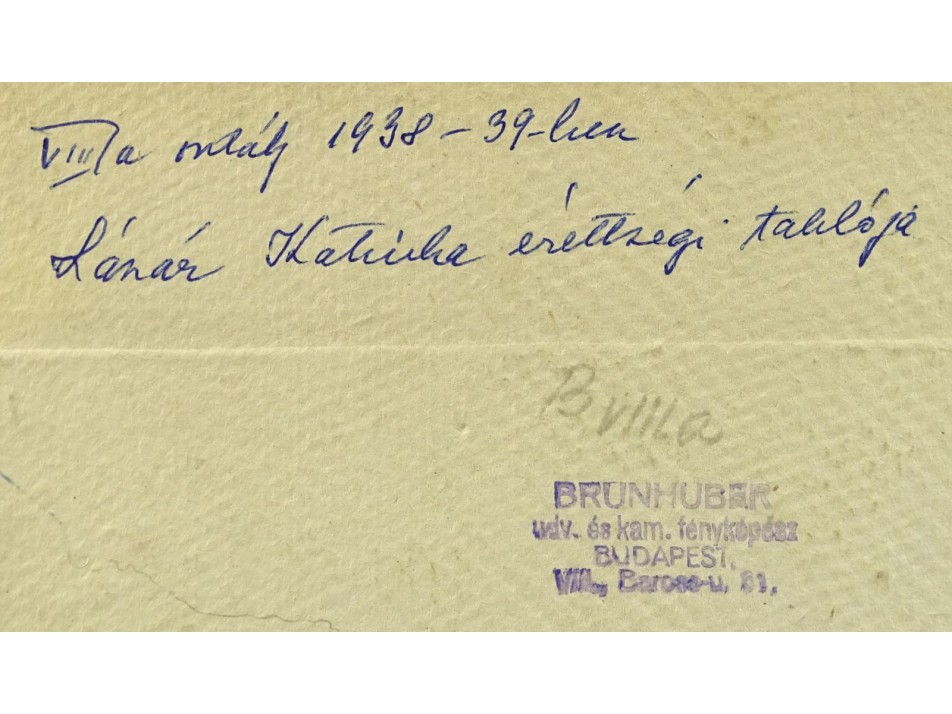 VIII/a osztály 1938-39-ben
Lázár Katinka érettségi tablója
B VIII.a
BRUNHUBER
udv. és kam. fényképész
BUDAPEST.
VIII., Baross-u. 61.